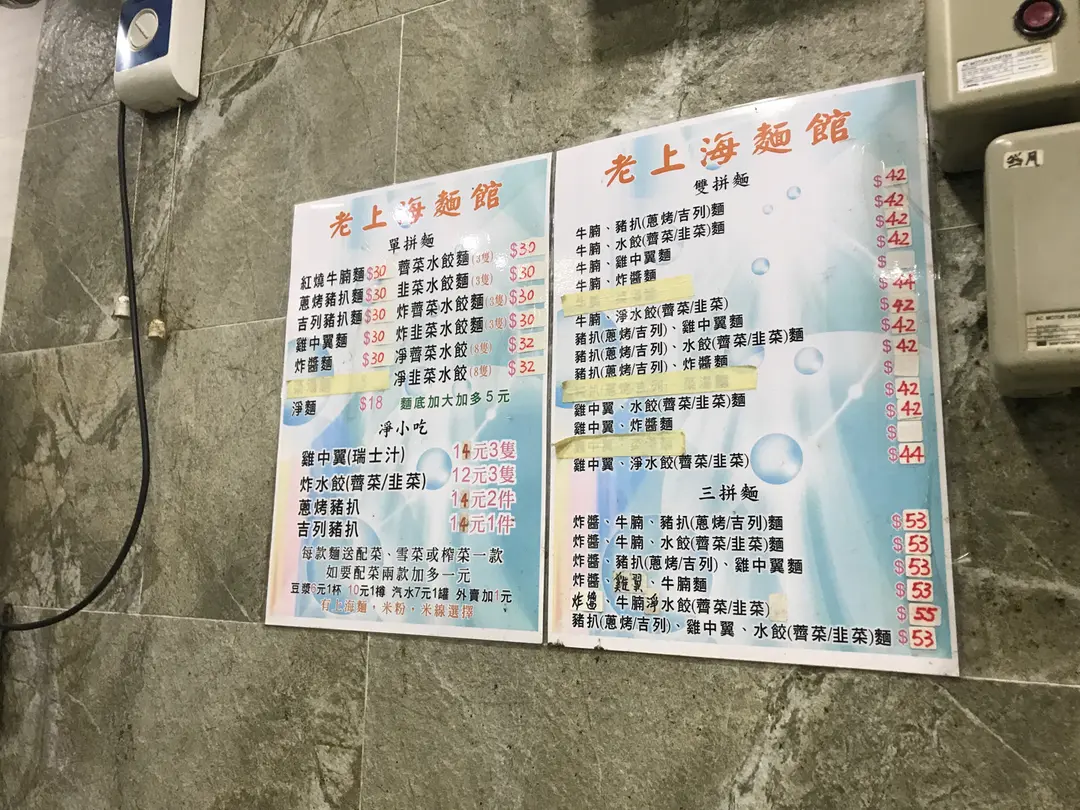 老上海麵館
單拼麵
紅燒牛腩麵 $30
蔥烤豬扒麵 $30
吉列豬扒麵 $30
雞中翼麵 $30
炸醬麵 $30
淨麵 $18
薺菜水餃麵(3隻) $30
韭菜水餃麵(3隻) $30
炸薺菜水餃麵(3隻) $30
炸韭菜水餃麵(3隻) $30
淨薺菜水餃(8隻) $32
淨韭菜水餃(8隻) $32
麵底加大加多5元
淨小吃
雞中翼(瑞士汁) 14元3隻
炸水餃(薺菜/韭菜) 12元3隻
蔥烤豬扒 14元2件
吉列豬扒 14元1件
每款麵送配菜、雪菜或榨菜一款
如要配菜兩款加多一元
豆漿6元1杯 10元1樽 汽水7元1罐 外賣加1元
有上海麵，米粉，米線選擇
老上海麵館
雙拼麵
牛腩、豬扒(蔥烤/吉列)麵 $42
牛腩、水餃(薺菜/韭菜)麵 $42
牛腩、雞中翼麵 $42
牛腩、炸醬麵 $42
牛腩、淨水餃(薺菜/韭菜) $44
豬扒(蔥烤/吉列)、雞中翼麵 $42
豬扒(蔥烤/吉列)、水餃(薺菜/韭菜)麵 $42
豬扒(蔥烤/吉列)、炸醬麵 $42
雞中翼、水餃(薺菜/韭菜)麵 $42
雞中翼、炸醬麵 $42
雞中翼、淨水餃(薺菜/韭菜) $44
三拼麵
炸醬、牛腩、豬扒(蔥烤/吉列)麵 $53
炸醬、牛腩、水餃(薺菜/韭菜)麵 $53
炸醬、豬扒(蔥烤/吉列)、雞中翼麵 $53
炸醬、雞翼、牛腩麵 $53
炸醬、牛腩淨水餃(薺菜/韭菜) $55
豬扒(蔥烤/吉列)、雞中翼、水餃(薺菜/韭菜)麵 $53